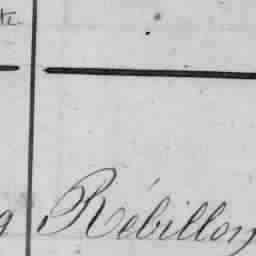 te
Rébillon